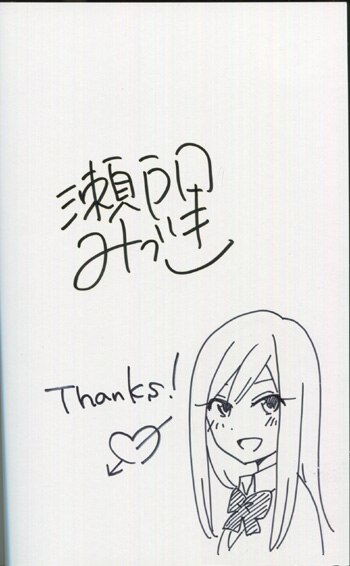 瀬戸
みづき
Thanks!